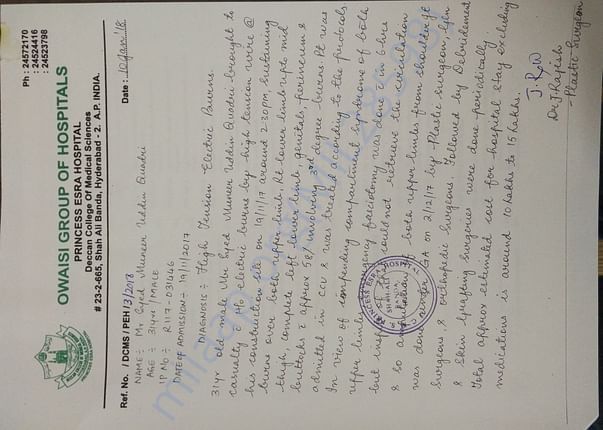 OWAISI GROUP OF HOSPITALS
PRINCESS ESRA HOSPITAL
Deccan College Of Medical Sciences
# 23-2-665, Shah Ali Banda, Hyderabad - 2. A.P. INDIA.
Ph : 24572170
: 24524416
: 24523798
Ref. No. / DCMS / PEH /3/2018
Date :
NAME :- Mr Syed Muneer Uddin Quadri
AGE :- 31yr / MALE
IP No :- R117-031046
DATE OF ADMISSION :- 19/11/2017
DIAGNOSIS :- High Tension Electric Burns
31yr old male Mr Syed Muneer Uddin Quadri brought to
casualty c H/o electric burns by high tension wire @
his construction site on 19/11/17 around 2-30pm, sustaining
burns over both upper limb, Rt lower limb upto mid
thigh, complete left lower limb, genitals, perineum &
buttocks c approx 58% involving 3rd degree burns. Pt was
admitted in CCU & was treated according to the protocols
In view of compartment syndrome of both
upper limbs emergency fasciotomy was done c in 6-hrs
but inspite of this could not retrieve the circulation
& so a of both upper limbs from shoulder jt
was done under GA on 2/12/17 by Plastic surgeon, Gen
surgeons & orthopedic surgeons. Followed by Debridement
& Skin grafting surgeries were done periodically.
Total approx estimated cost for hospital stay excluding
medications is around 10 lakhs to 15 lakhs.
Dr.
- Plastic Surgeon
PRINCESS ESRA HOSPITAL
milaap